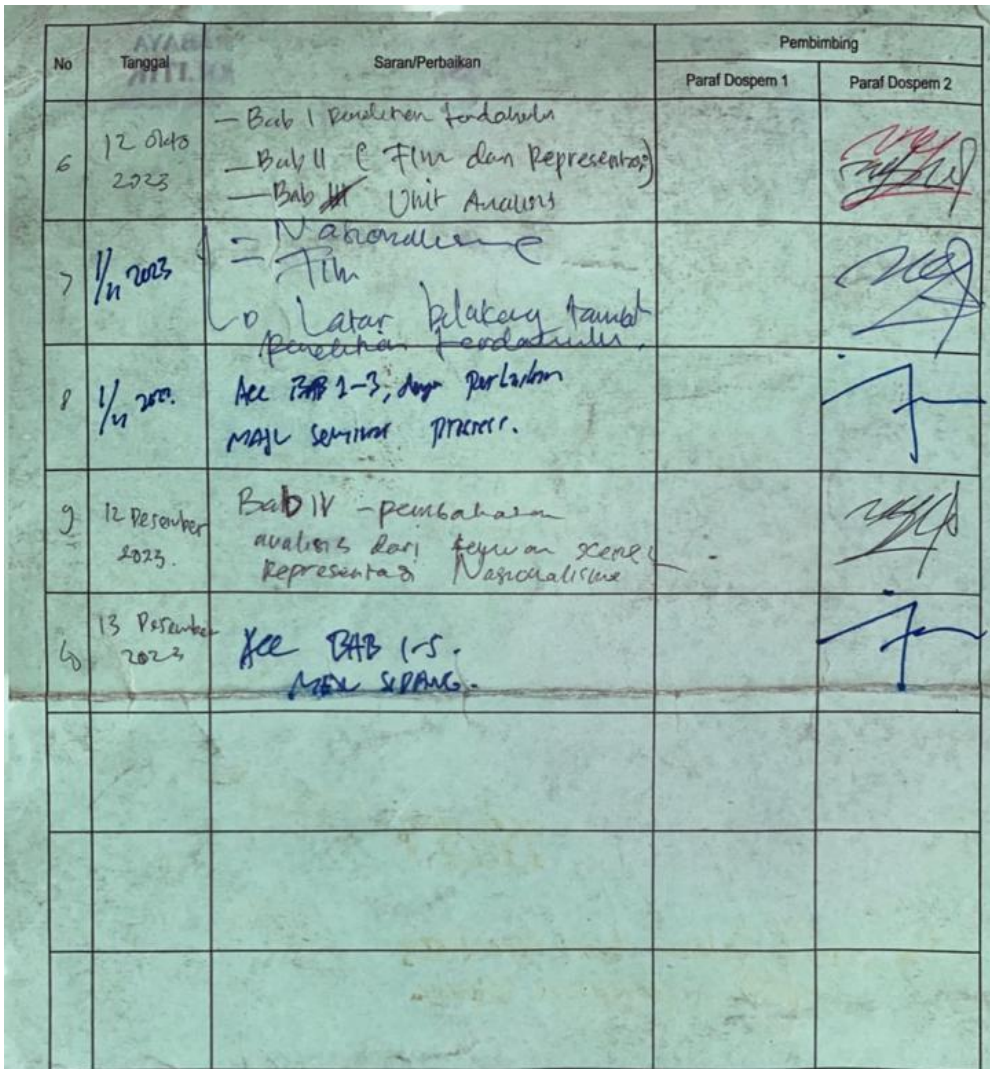 No Tanggal Saran/Perbaikan Pembimbing
Paraf Dospem 1 Paraf Dospem 2
6 12 Okto 2023
- Bab I Penelitian terdahulu
- Bab II ( Film dan Representasi)
- Bab III Unit Analisis
7 1/11 2023
= Nasionalisme
Film
Latar belakang tambah
penelitian terdahulu.
8 1/11
Acc BAB 1-3,
Maju seminar
9 12 Desember 2023.
Bab IV - pembahasan
analisis dari scene
Representasi Nasionalisme
13 Desember 2023
Acc BAB 1-5.
SIDANG.